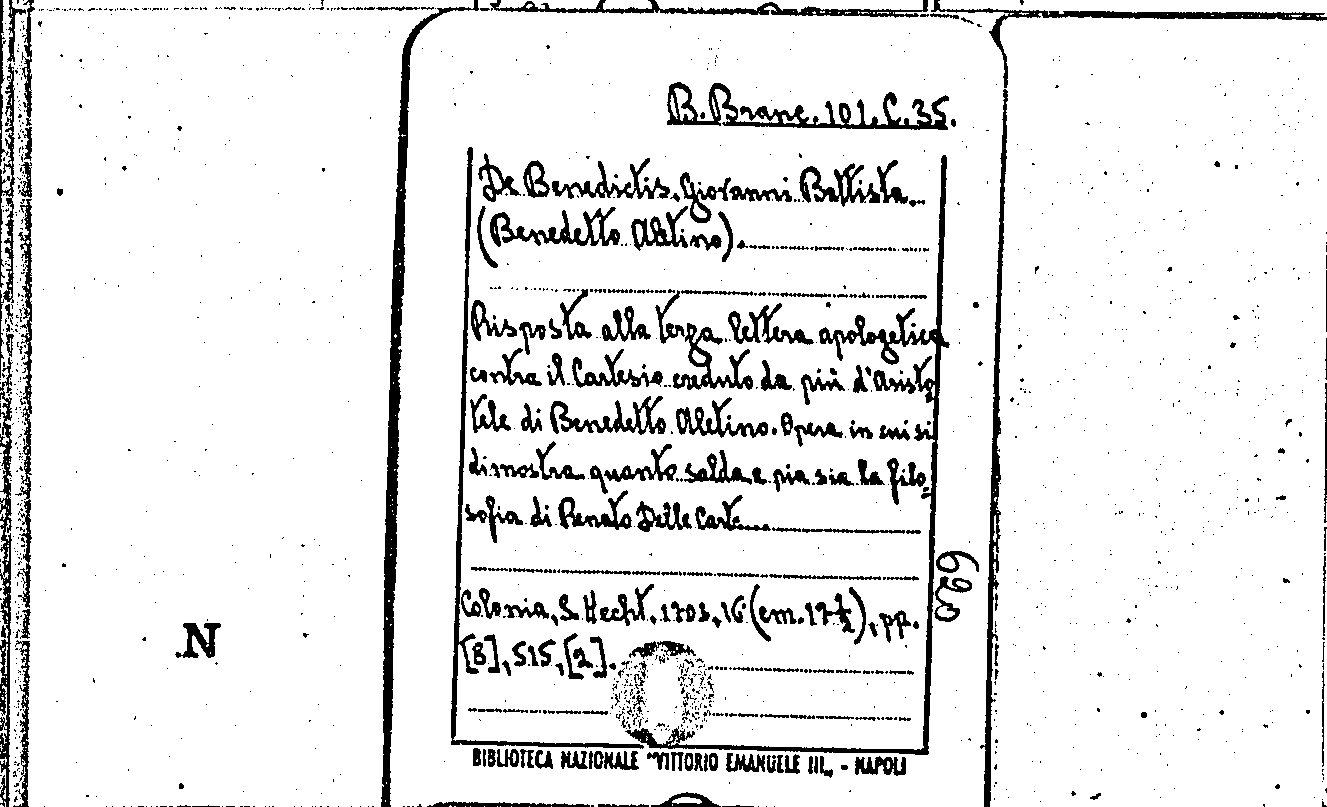 B. Branc. 101. C. 35.
De Benedictis, Giovanni Battista
(Benedetto Aletino).
Risposta alla terza lettera apologetica
contra il Cartesio creduto da più d'Aristo=
tele di Benedetto Aletino. Opera in cui si
dimostra quanto salda e pia sia la filo=
sofia di Renato Delle Carte
Colonia, S. Hecht, 1703, 16 (cm. 17 ½), pp.
[8], 515, [2].
N
BIBLIOTECA NAZIONALE "VITTORIO EMANUELE III„ - NAPOLI